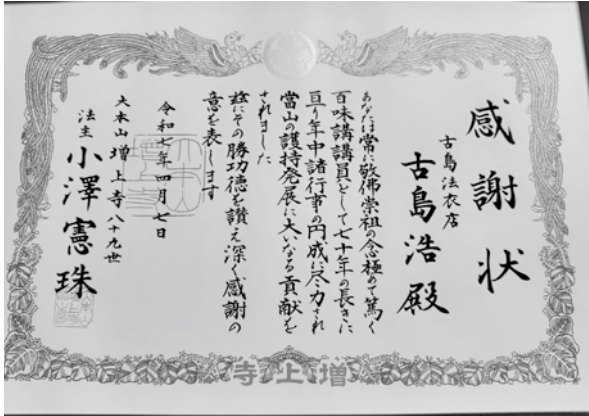 感謝状
古島法衣店
古島浩殿
あなたは常に敬佛崇祖の念極めて篤く
百味講講員として七十年の長きに
亘り年中諸行事の円成に尽力され
當山の護持発展に大いなる貢献を
されました
茲にその勝功徳を讃え深く感謝の
意を表します
令和七年四月七日
大本山増上寺八十九世
法主小澤憲珠
増上寺